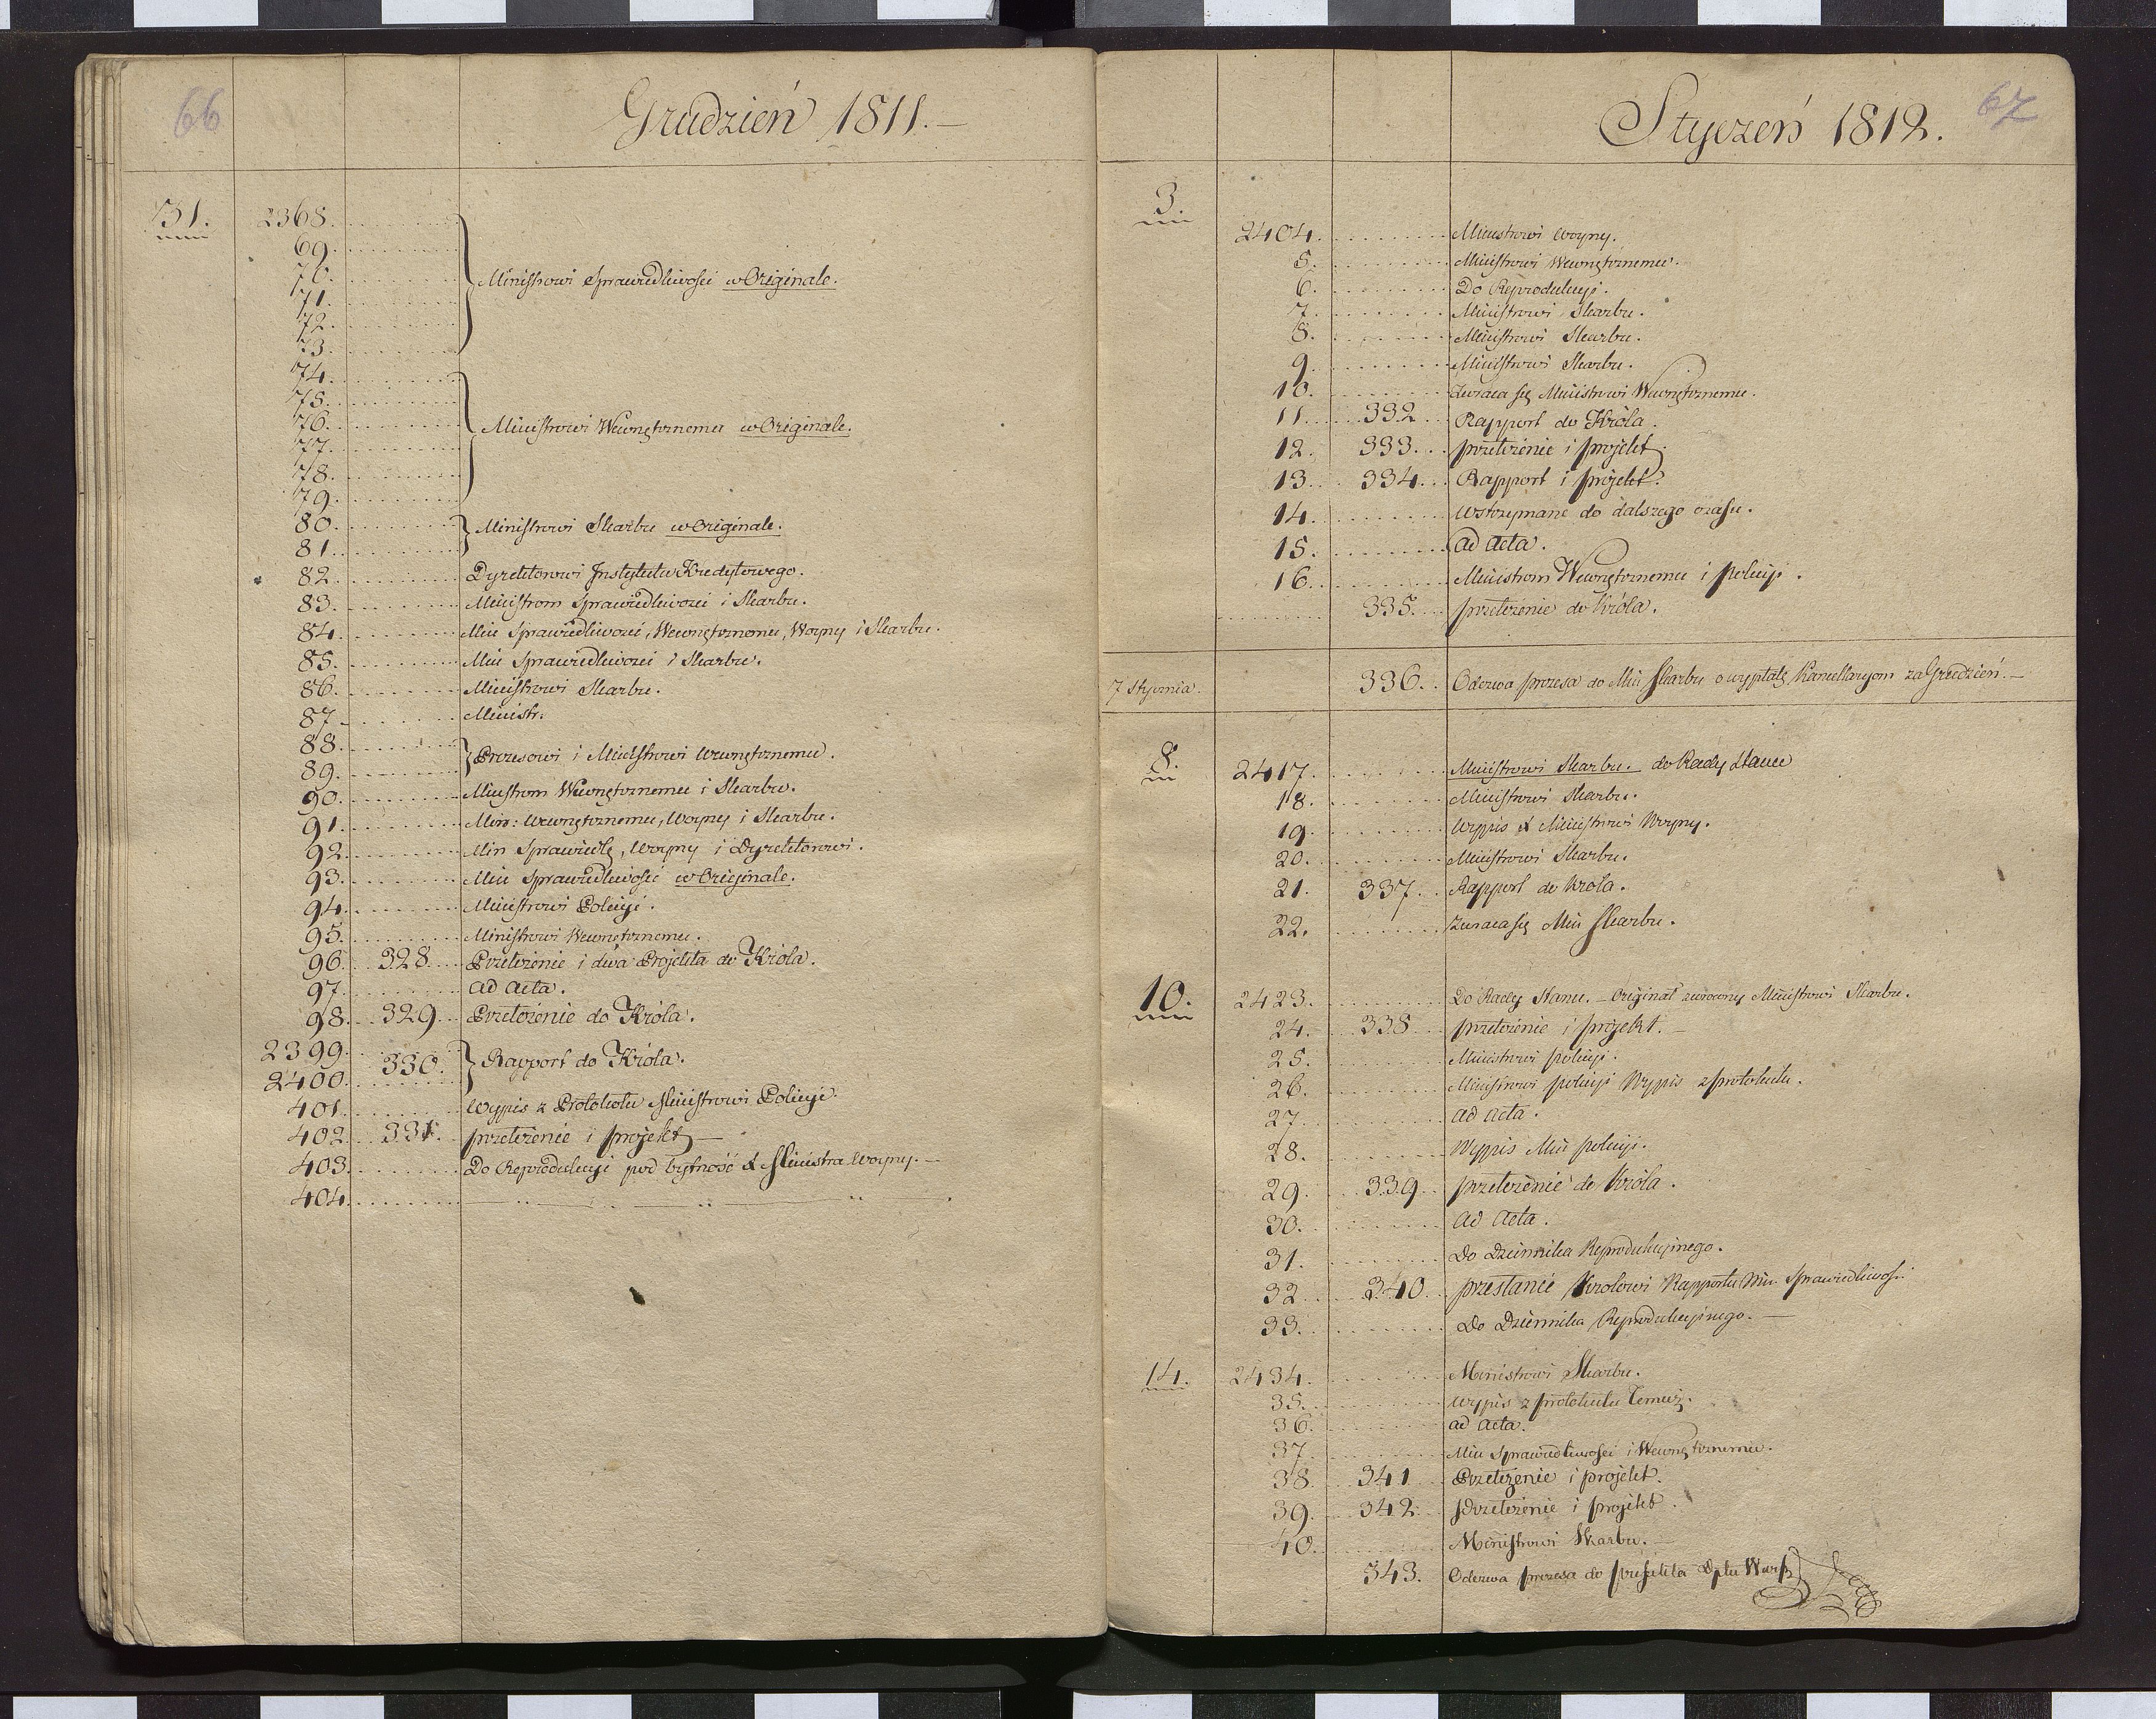 66
Grudzień 1811.
31.
2368.
69.
70. Ministrowi Sprawiedliwości w Originale.
71.
72.
73.
74.
75.
76. Ministrowi Wewnętrznemu w Originale.
77.
78.
79.
80. Ministrowi Skarbu w Originale.
81.
82. Dyrektorowi Instytutu Kredytowego.
83. Ministrom Sprawiedliwości i Skarbu.
84. Min Sprawiedliwości, Wewnętrznemu, Woyny i Skarbu.
85. Min Sprawiedliwości i Skarbu.
86. Ministrowi Skarbu.
87. Ministr:
88. Prezesowi i Ministrowi Wewnętrznemu.
89.
90. Ministrom Wewnętrznemu i Skarbu.
91. Min: Wewnętrznemu, Woyny i Skarbu.
92. Min Sprawiedlę, Woyny i Dyrektorowi.
93. Min Sprawiedliwości w Originale.
94. Ministrowi Policyi.
95. Ministrowi Wewnętrznemu.
96. 328. Przełożenie i dwa Projekta do Króla.
97. ad acta.
98. 329. Przełożenie do Króla.
2399. 330. Rapport do Króla.
2400.
401. Wypis z Protokołu Ministrowi Policyi.
402. 331. przełożenie i projekt
403. Do Reprodukcyi pod bytność Ministra Woyny.
404.
67
Styczeń 1812.
3.
2404. Ministrowi Woyny.
5. Ministrowi Wewnętrznemu.
6. Do Reprodukcyi.
7. Ministrowi Skarbu.
8. Ministrowi Skarbu.
9. Ministrowi Skarbu.
10. Zwraca się Ministrowi Wewnętrznemu.
11. 332. Rapport do Króla.
12. 333. przełożenie i projekt.
13. 334. Rapport i projekt.
14. Wstrzymane do dalszego czasu.
15. ad acta.
16. Ministrom Wewnętrznemu i policyi.
335. przełożenie do Króla.
7 Stycznia. 336. Odezwa prezesa do Min Skarbu o wypłatę Kancellaryom za Grudzień.
8.
2417. Ministrowi Skarbu. do Rady Stanu
18. Ministrowi Skarbu.
19. Wypis Ministrowi Woyny.
20. Ministrowi Skarbu.
21. 337. Rapport do Krola.
22. Zwraca się Min Skarbu.
10.
2423. Do Rady Stanu. - Originał zwrocony Ministrowi Skarbu.
24. 338 przełożenie i projekt.
25. Ministrowi policyi.
26. Ministrowi policyi Wypis z protokułu.
27. ad acta.
28. Wypis Min policyi.
29. 339. przełożenie do Króla.
30. ad acta.
31. Do Dziennika Reprodukcyjnego.
32. 340. przesłanie Krolowi Rapportu Min Sprawiedliwoś:
33. Do Dziennika Reprodukcyjnego.
14.
2434. Ministrowi Skarbu.
35. Wypis z protokułu Temuż.
36. ad acta.
37. Min Sprawiedliwości i Wewnętrznemu.
38. 341 Przełożenie i projekt.
39. 342. Przełożenie i projekt.
40. Ministrowi Skarbu.
343. Odezwa prezesa do prefekta Dptu Warsz